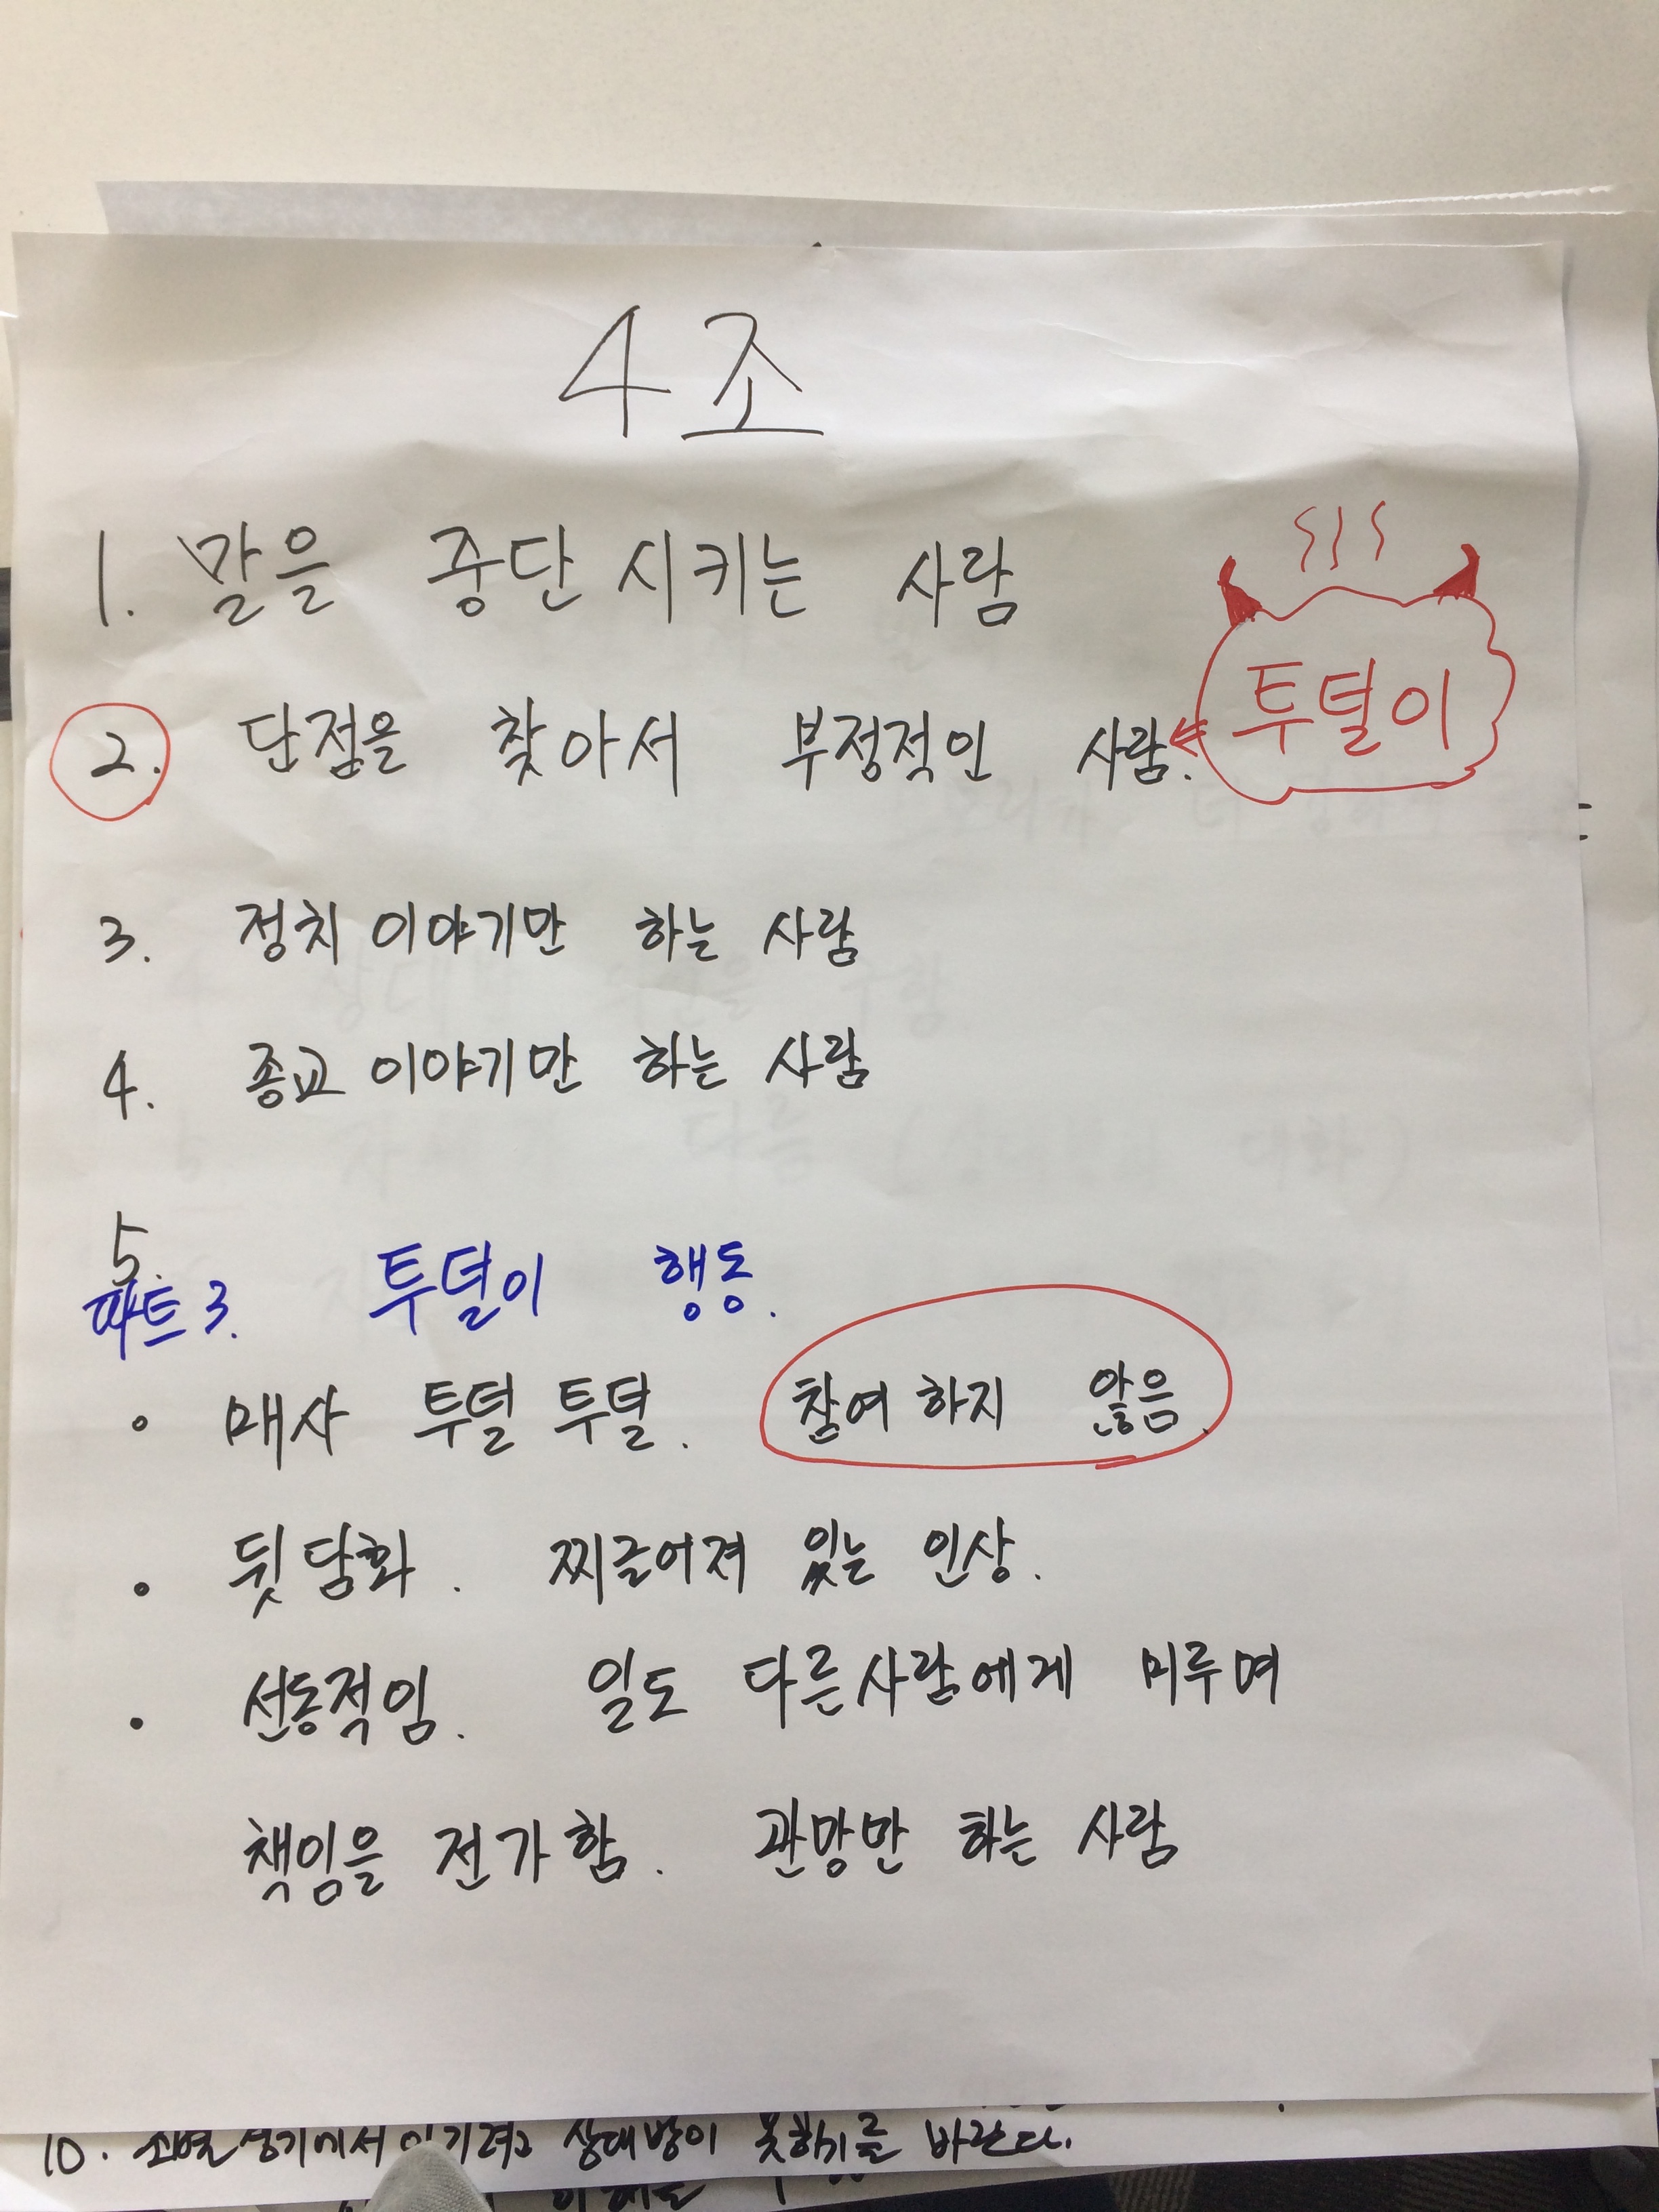 4조
1. 말을 중단시키는 사람
투덜이
2. 단점을 찾아서 부정적인 사람.
3. 정치 이야기만 하는 사람
4. 종교 이야기만 하는 사람
5.
파트3. 투덜이 행동.
• 매사 투덜투덜. 참여하지 않음.
• 뒷담화. 찌글어져 있는 인상.
• 선동적임. 일도 다른사람에게 미루며
책임을 전가함. 관망만 하는 사람
10. 상대방이 못하기를 바란다.